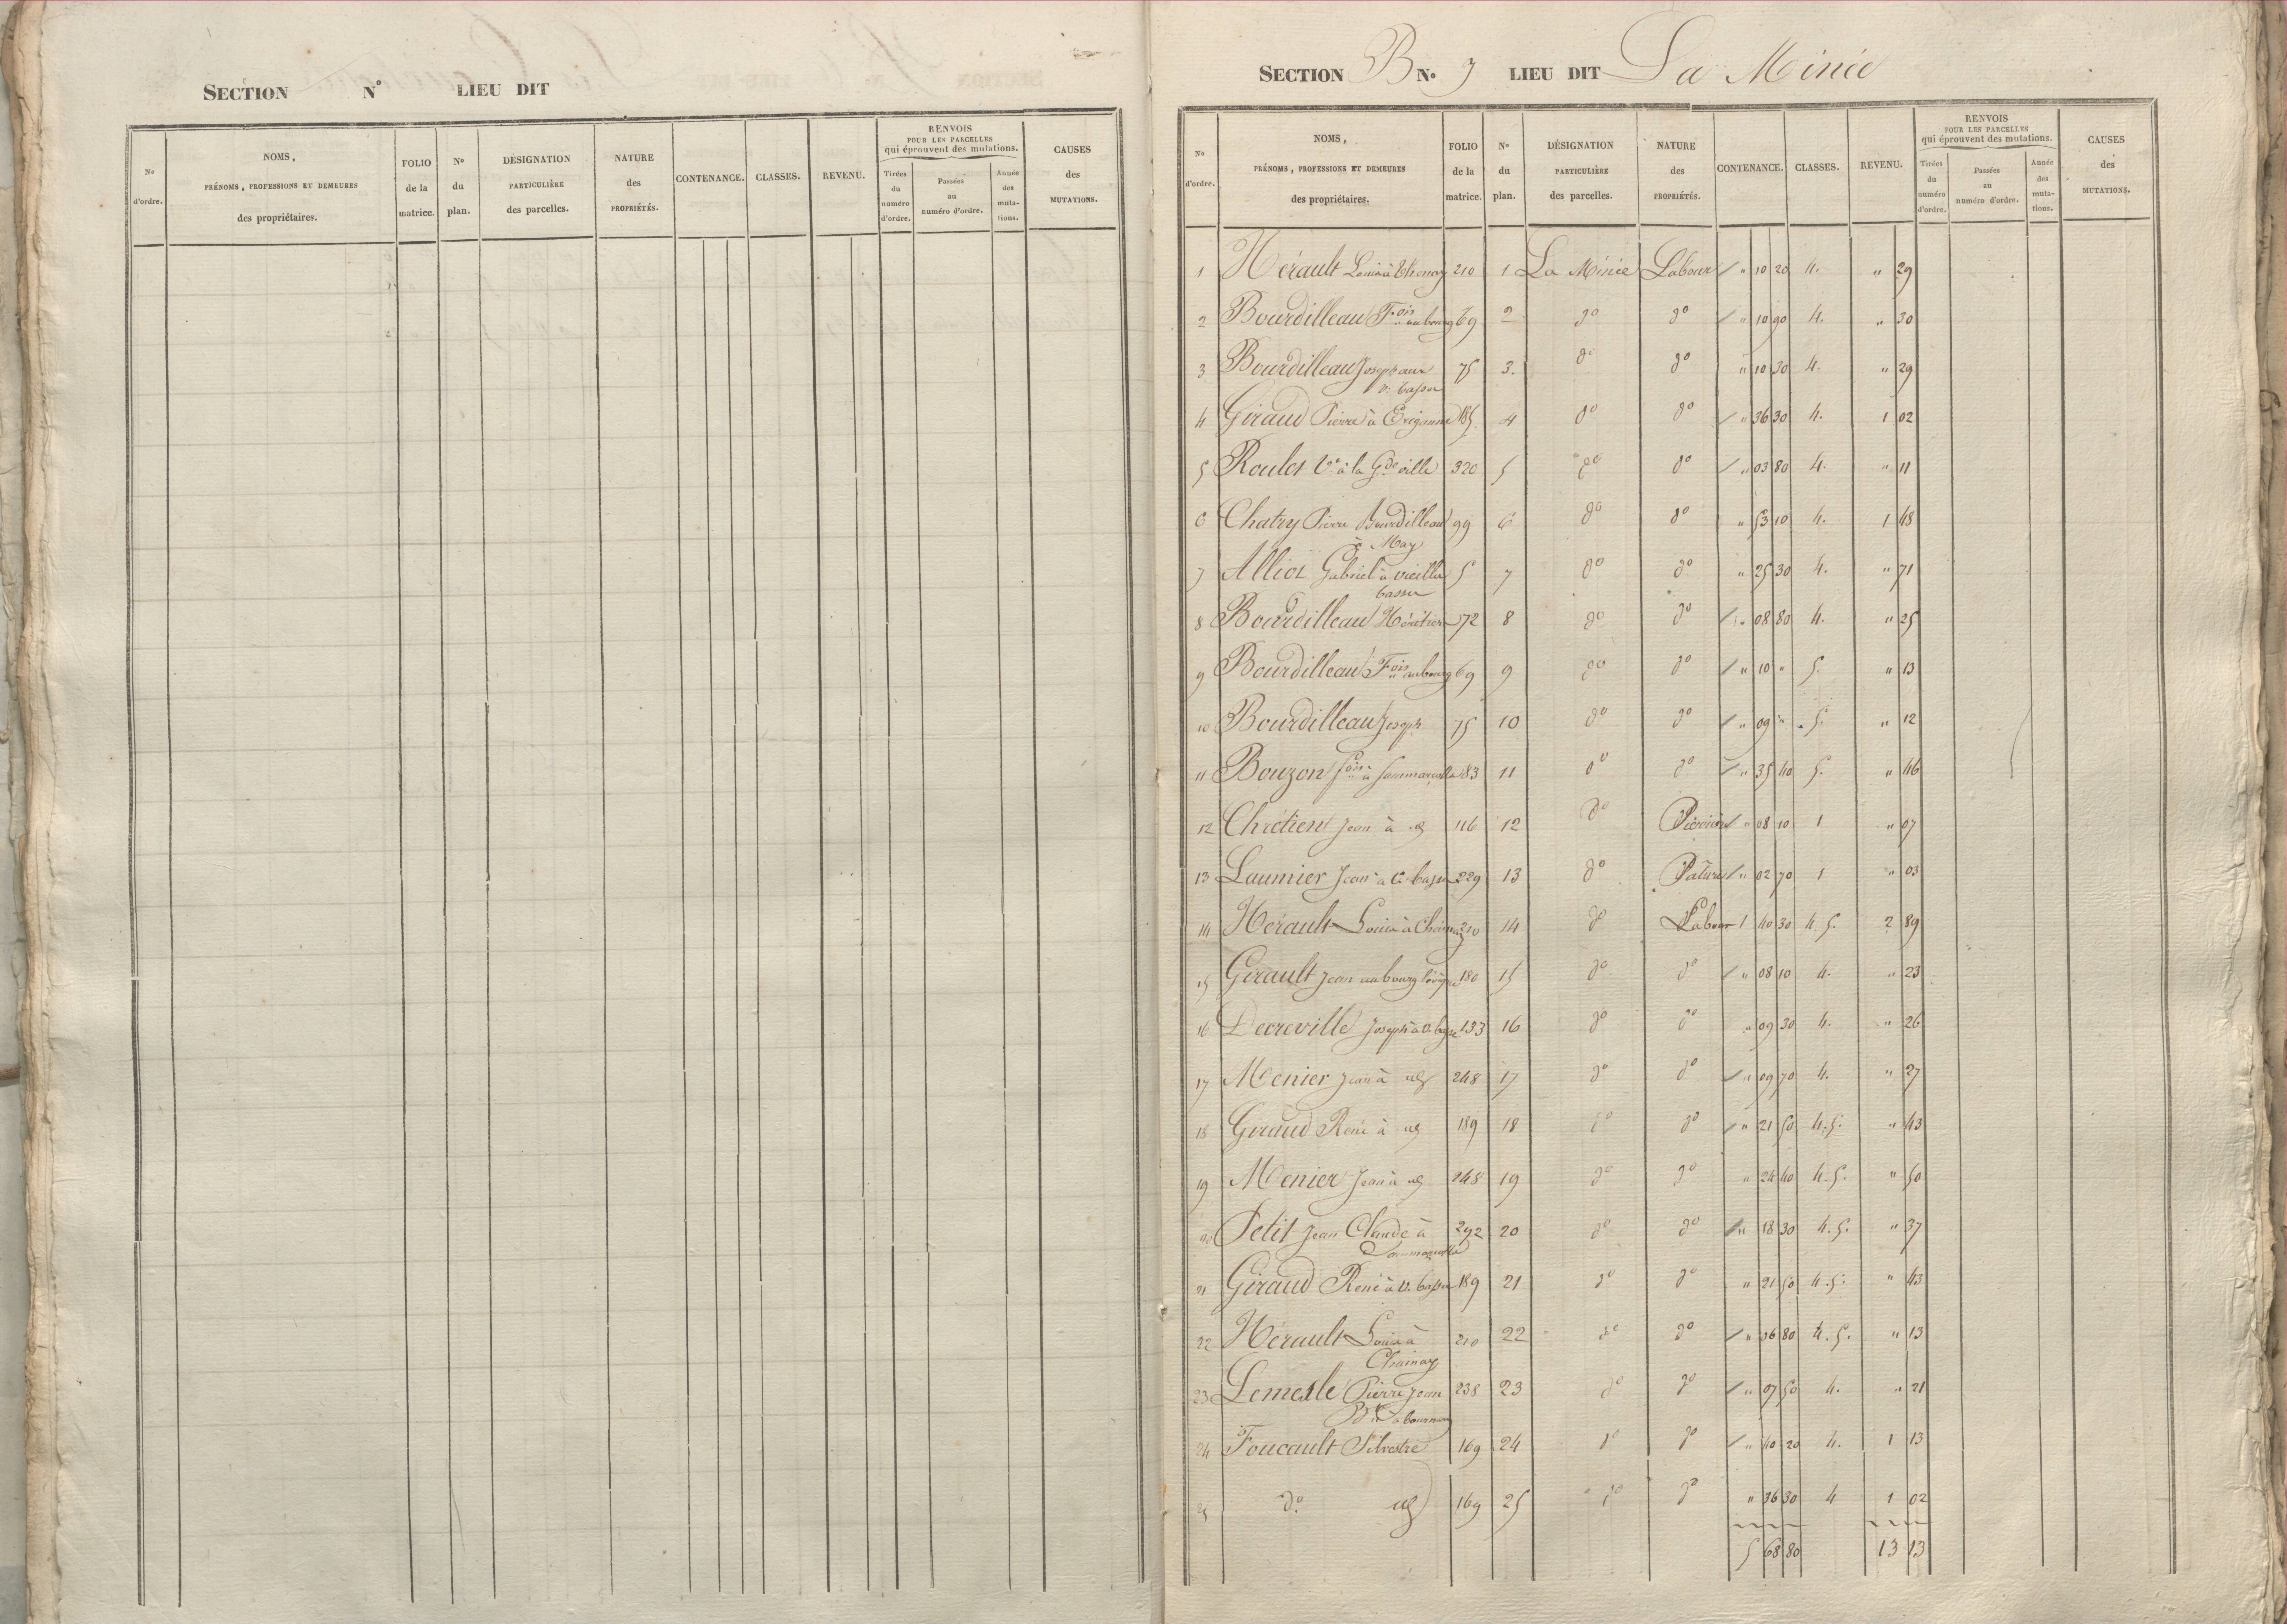 SECTION N° LIEU DIT
N° d'ordre.
NOMS, PRÉNOMS, PROFESSIONS ET DEMEURES des propriétaires.
FOLIO de la matrice.
N° du plan.
DÉSIGNATION PARTICULIÈRE des parcelles.
NATURE des PROPRIÉTÉS.
CONTENANCE.
CLASSES.
REVENU.
RENVOIS POUR LES PARCELLES qui éprouvent des mutations.
Tirées du numéro d'ordre.
Passées au numéro d'ordre.
Année des mutations.
CAUSES des MUTATIONS.
SECTION B N° 9 LIEU DIT La Minée
N° d'ordre.
NOMS, PRÉNOMS, PROFESSIONS ET DEMEURES des propriétaires.
FOLIO de la matrice.
N° du plan.
DÉSIGNATION PARTICULIÈRE des parcelles.
NATURE des PROPRIÉTÉS.
CONTENANCE.
CLASSES.
REVENU.
RENVOIS POUR LES PARCELLES qui éprouvent des mutations.
Tirées du numéro d'ordre.
Passées au numéro d'ordre.
Année des mutations.
CAUSES des MUTATIONS.
1 Hérault Louis à 210 1 La Minée Labour " 10 20 4. " 29
2 Bourdilleau Fois au bourg 69 2 do do " 10 90 4. " 30
3 Bourdilleau Joseph aux v. basses 75 3. do do " 10 30 4. " 29
4 Giraud Pierre à 185 4 do do " 36 30 4. 1 02
5 Roulet Ve à la Gde ville 320 5 do do " 03 80 4. " 11
6 Chatry Pierre Bourdilleau à May 99 6 do do " 53 10 4. 1 48
7 Alliot Gabriel à vieille basse 5 7 do do " 25 30 4. " 71
8 Bourdilleau Héritier 72 8 do do " 08 80 4. " 25
9 Bourdilleau Fois au bourg 69 9 do do " 10 " 5. " 13
10 Bourdilleau Joseph 75 10 do do " 09 " 5. " 12
11 Bouzon fois à 83 11 do do " 35 40 5. " 46
12 Chrétien Jean à id 116 12 do " 08 10 1 " 07
13 Laumier Jean à v. basse 229 13 do Pature " 02 70 1 " 03
14 Hérault Louis à Chainay 210 14 do Labour 1 40 30 4. 5. 2 89
15 Girault Jean au bourg 180 15 do do " 08 10 4. " 23
16 Decreville Joseph à v. basse 133 16 do do " 09 30 4. " 26
17 Menier Jean à id 248 17 do do " 09 70 4. " 27
18 Giraud René à id 189 18 do do " 21 50 4. 5. " 43
19 Menier Jean à id 248 19 do do " 24 40 4. 5. " 50
20 Petit Jean Claude à 292 20 do do " 18 30 4. 5. " 37
21 Giraud René à v. basse 189 21 do do " 21 50 4. 5. " 43
22 Hérault Louis à Chainay 210 22 do do " 06 80 4. 5. " 13
23 Lemesle Pierre Jean Bte à bournay 238 23 do do " 07 50 4. " 21
24 Foucault Silvestre 169 24 do do " 40 20 4. 1 13
25 do. id 169 25 do do " 36 30 4 1 02
5 68 80 13 13